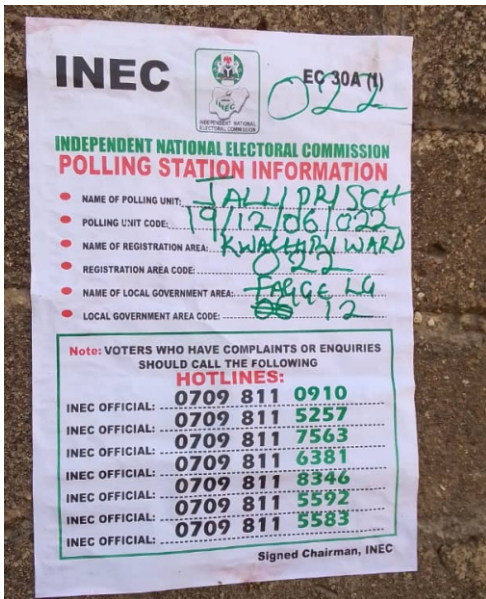 INEC
EC 30A (1)
022
INEC
INDEPENDENT NATIONAL
ELECTORAL COMMISSION
INDEPENDENT NATIONAL ELECTORAL COMMISSION
POLLING STATION INFORMATION
NAME OF POLLING UNIT: JALLI PRI SCH
POLLING UNIT CODE: 19/12/06/022
NAME OF REGISTRATION AREA: WARD
REGISTRATION AREA CODE: 022
NAME OF LOCAL GOVERNMENT AREA: FAGGE LG
LOCAL GOVERNMENT AREA CODE: 12
Note: VOTERS WHO HAVE COMPLAINTS OR ENQUIRIES
SHOULD CALL THE FOLLOWING
HOTLINES:
INEC OFFICIAL: 0709 811 0910
INEC OFFICIAL: 0709 811 5257
INEC OFFICIAL: 0709 811 7563
INEC OFFICIAL: 0709 811 6381
INEC OFFICIAL: 0709 811 8346
INEC OFFICIAL: 0709 811 5592
INEC OFFICIAL: 0709 811 5583
Signed Chairman, INEC